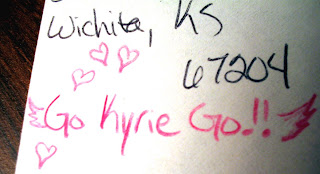 Wichita, KS
67204
Go Kyrie Go!!